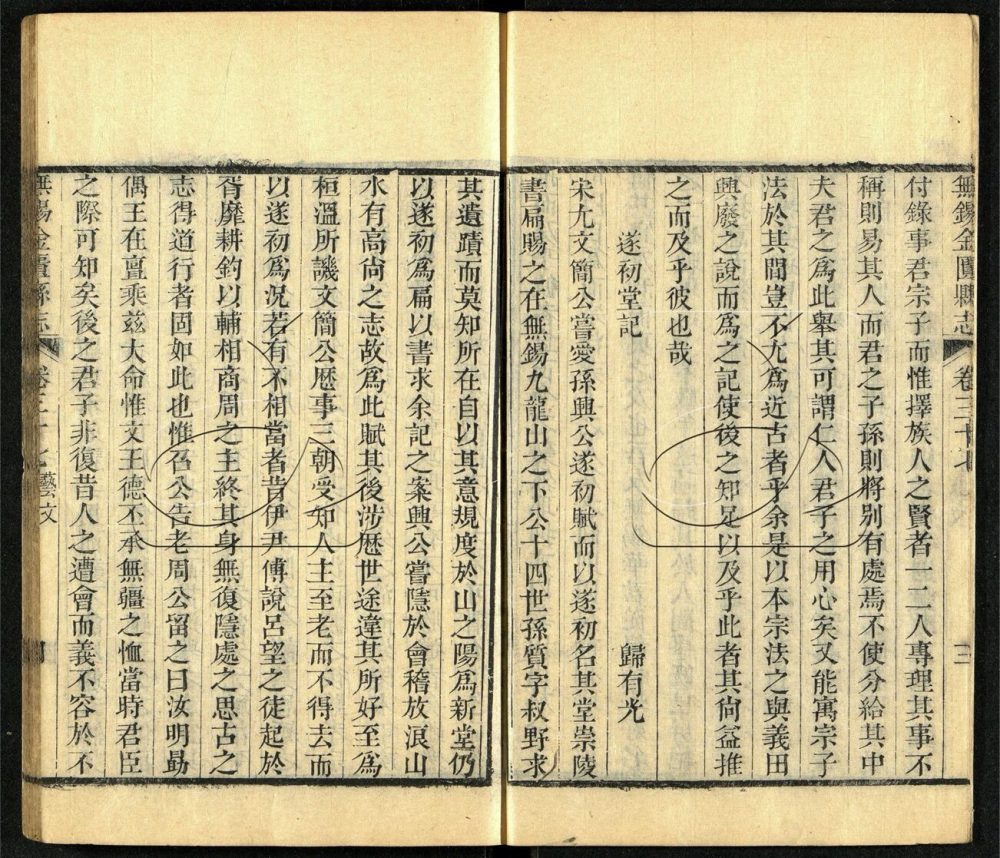 無錫金匱縣志 卷三十七 三
付錄事君宗子而惟擇族人之賢者一二人專理其事不
稱則易其人而君之子孫則將別有處焉不使分給其中
夫君之爲此舉其可謂仁人君子之用心矣又能寓宗子
法於其間豈不尤爲近古者乎余是以本宗法之與義田
興廢之說而爲之記使後之知足以及乎此者其尙益推
之而及乎彼也哉
遂初堂記 歸有光
宋尤文簡公嘗愛孫興公遂初賦而以遂初名其堂崇陵
書扁賜之在無錫九龍山之下公十四世孫質字叔野求
其遺蹟而莫知所在自以其意規度於山之陽爲新堂仍
以遂初爲扁以書求余記之案興公嘗隱於會稽放浪山
水有高尙之志故爲此賦其後涉歷世途違其所好至爲
桓溫所譏文簡公歷事三朝受知人主至老而不得去而
以遂初爲況若有不相當者昔伊尹傅說呂望之徒起於
胥靡耕釣以輔相商周之主終其身無復隱處之思古之
志得道行者固如此也惟召公告老周公留之曰汝明勗
偶王在亶乘茲大命惟文王德丕承無疆之恤當時君臣
之際可知矣後之君子非復昔人之遭會而義不容於不
無錫金匱縣志 卷三十七 藝文